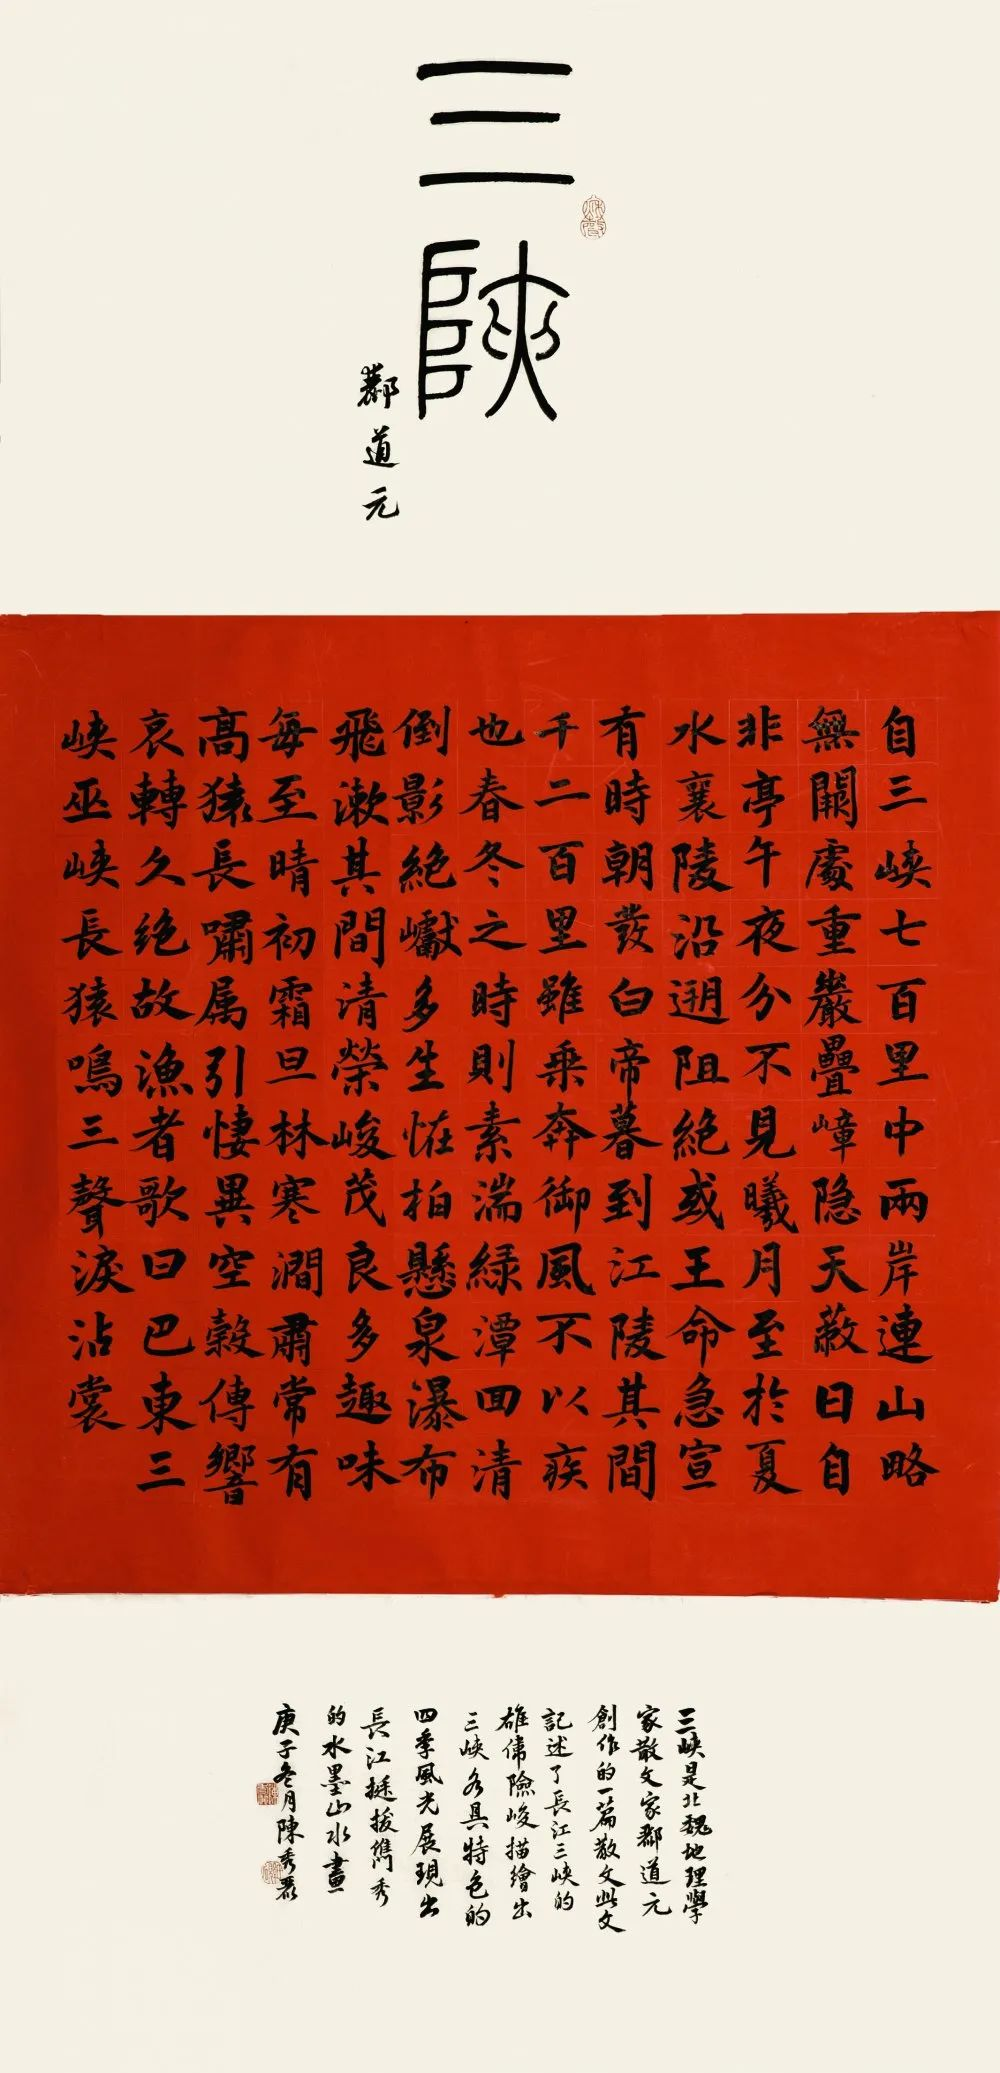 三陜
酈道元
自三峽七百里中兩岸連山略
無闕處重巖疊嶂隐天蔽日自
非亭午夜分不見曦月至於夏
水襄陵沿遡阻絶或王命急宣
有時朝發白帝暮到江陵其間
千二百里雖乗奔御風不以疾
也春冬之時則素湍緑潭回清
倒影絶巘多生恠柏懸泉瀑布
飛漱其間清榮峻茂良多趣味
每至晴初霜旦林寒澗肅常有
高猿長嘯属引悽異空穀傳響
哀轉久绝故漁者歌曰巴東三
峽巫峽長猿鳴三聲淚沾裳
三峽是北魏地理學
家散文家酈道元
創作的一篇散文此文
記述了長江三峽的
雄偉險峻描繪出
三峽各具特色的
四季風光展現出
長江挺拔雋秀
的水墨山水畫
庚子冬月陳秀